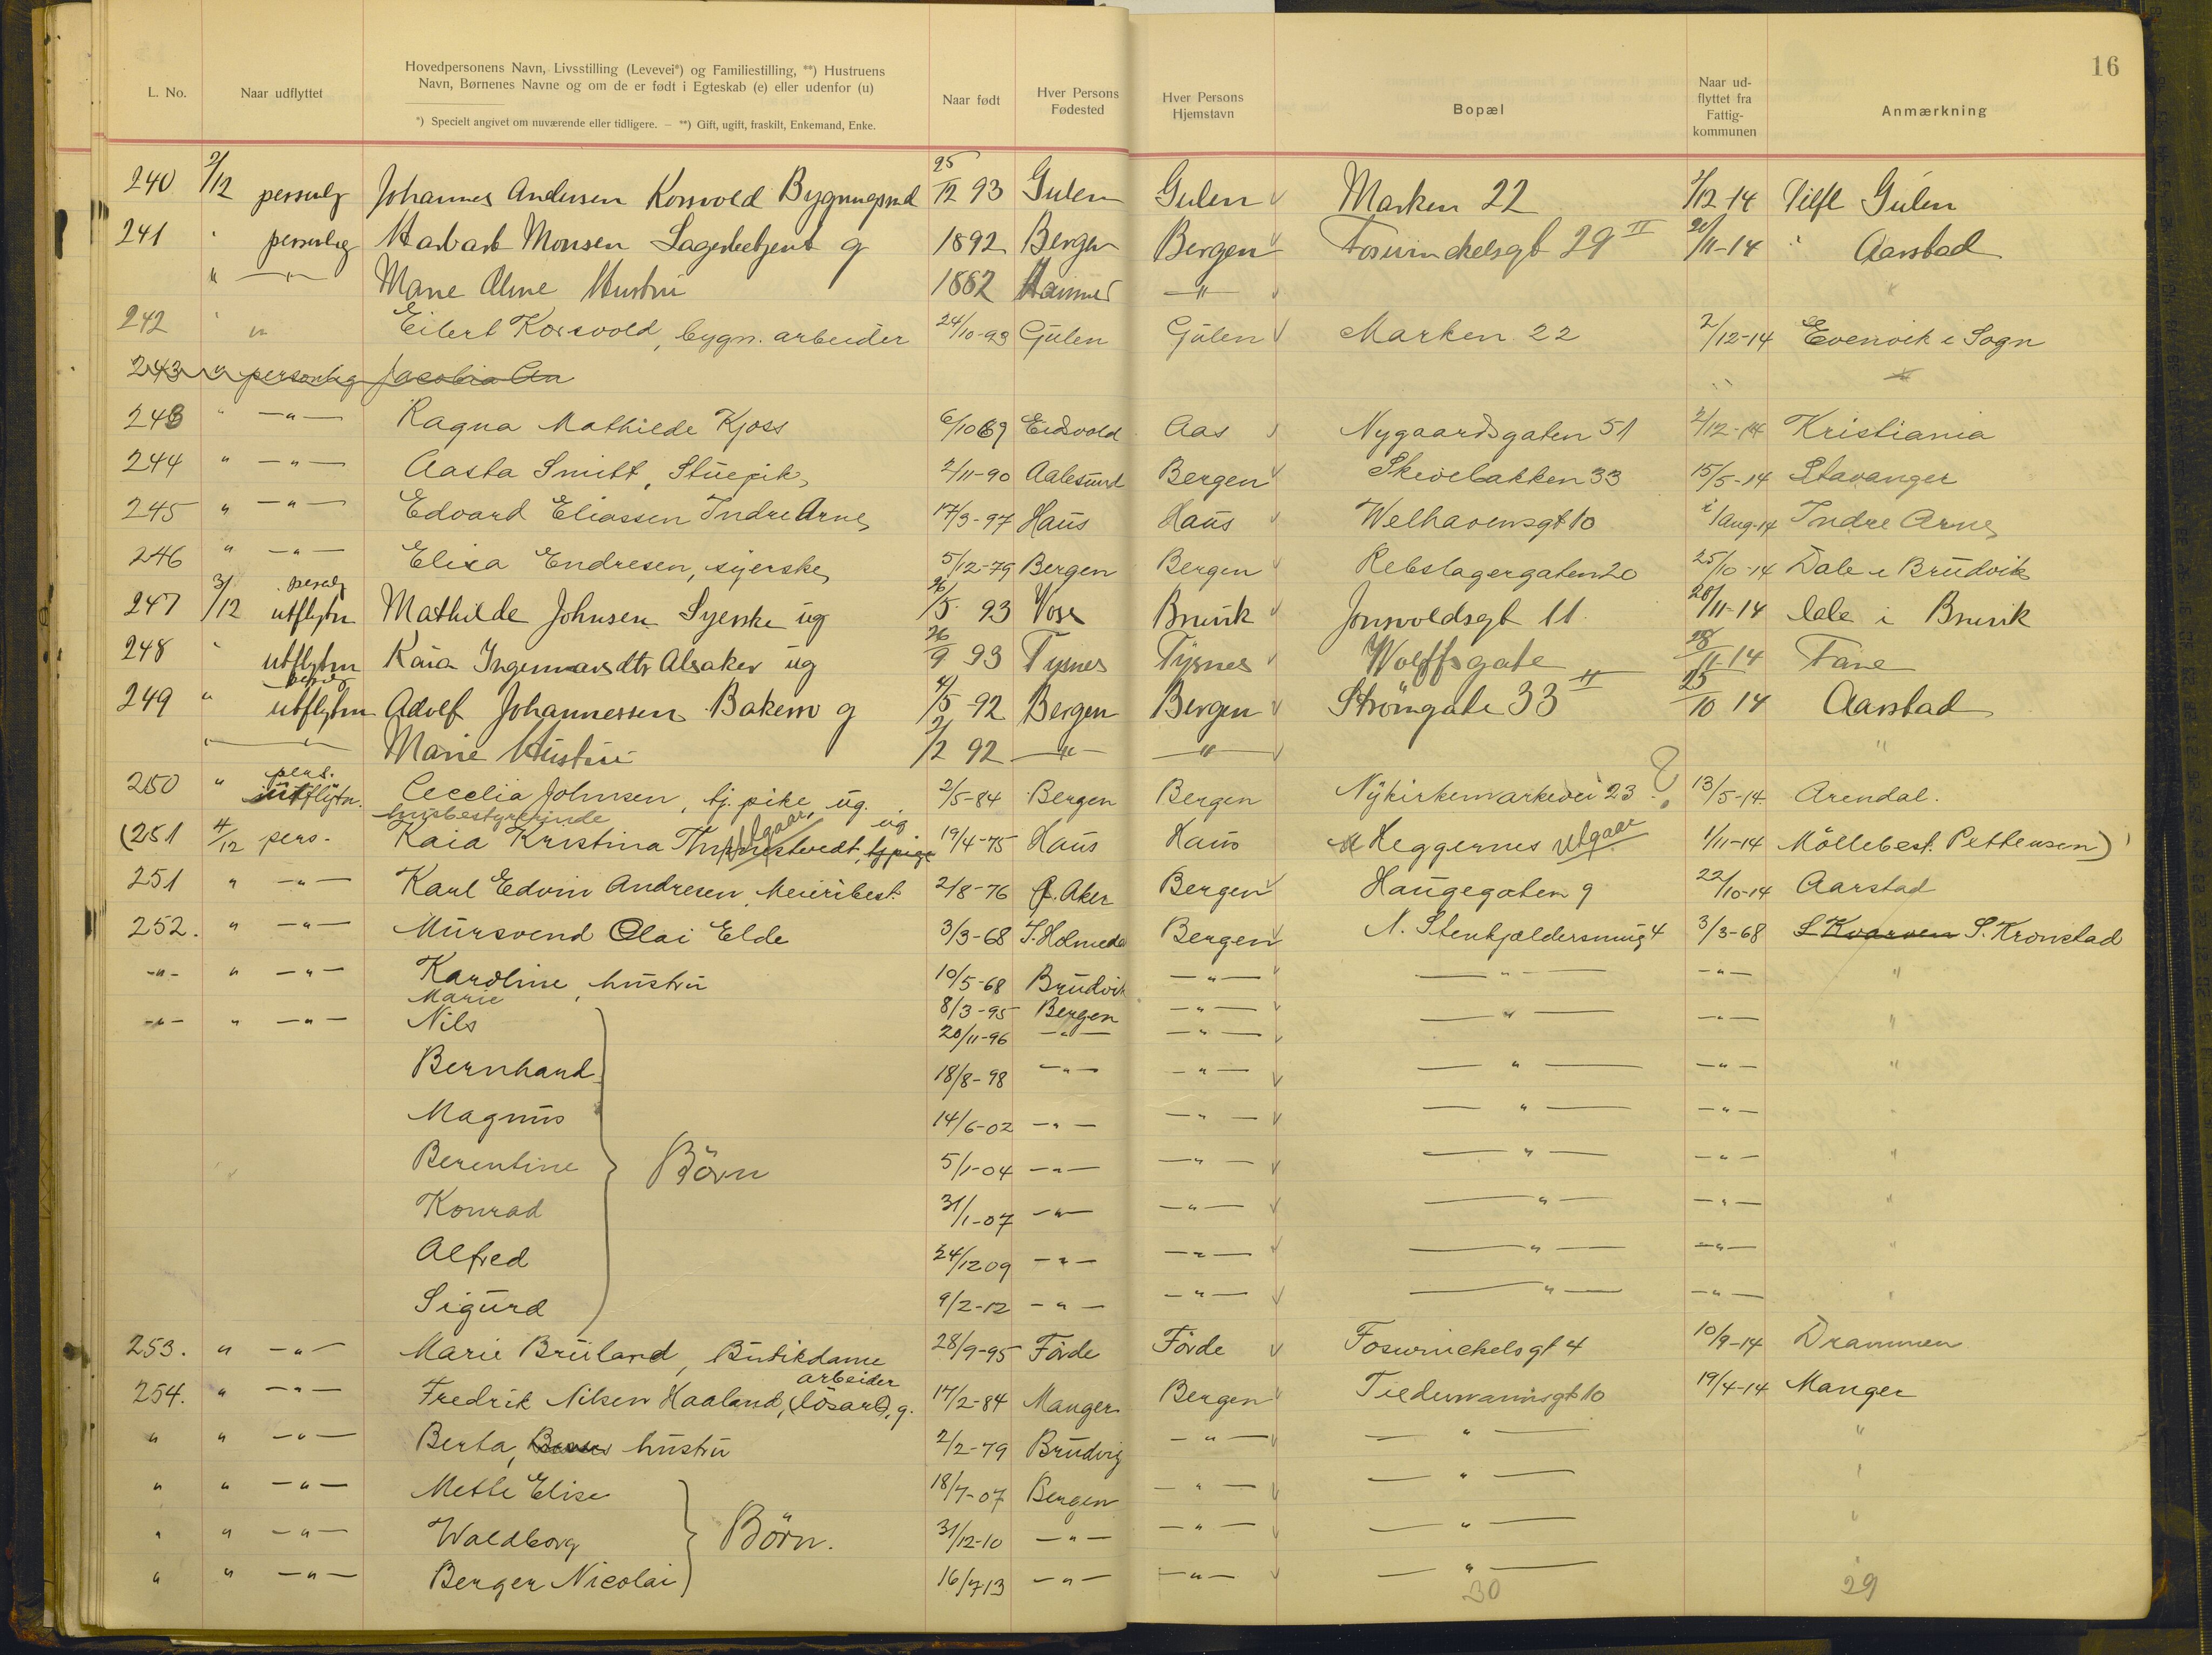 16
L. No.
Naar udflyttet
Hovedpersonens Navn, Livsstilling (Levevei*) og Familiestilling, **) Hustruens
Navn, Børnenes Navne og om de er født i Egteskab (e) eller udenfor (u)
*) Specielt angivet om nuværende eller tidligere. — **) Gift, ugift, fraskilt, Enkemand, Enke.
Naar født
Hver Persons Fødested
Hver Persons Hjemstavn
Bopæl
Naar ud-
flyttet fra
Fattig-
kommunen
Anmærkning
240 2/12 Johannes Andersen Korsvold 25/12 93 Gulen Gulen Marken 22 2/12 14 Tilfl Gulen
241 " Monsen Lagerbetjent g 1892 Bergen Bergen Fosswinckelsgt 29 II 20/11-14 " Aarstad
" —"— Marie Hustru 1882 Hammer —"—
242 " " Eilert Korsvold, bygn. arbeider 24/10-93 Gulen Gulen Marken 22 2/12-14 Evenvik i Sogn
243 " personlig Jacobia An
243 " —"— Ragna Mathilde Kjoss 6/10 69 Eidsvold Aas Nygaardsgaten 51 2/12-14 Kristiania
244 " —"— Aasta Smitt, Stuepike 2/11-90 Aalesund Bergen Skivebakken 33 15/5-14 Stavanger
245 " —"— Edvard Eliassen Indre Arne 17/3-97 Haus Haus Welhavensgt 10 i/Aug-14 Indre Arne
246 " —"— Elisa Endresen, syerske 5/12-79 Bergen Bergen Rebslagergaten 20 25/10-14 Dale i Brudvik
247 3/12 utflytn Mathilde Johnsen Syerske ug 26/5 93 Voss Bruvik Jonsvoldsgt 11 28/11-14 Dale i Bruvik
248 " utflytn Kaia Ingemarsdtr Alsaker ug 26/9 93 Tysnes Tysnes Wolffsgate 28/11-14 Fane
249 " utflytn Adolf Johannessen g 4/5-92 Bergen Bergen Strömgate 33 II 25/10 14 Aarstad
Marie Hustru 2/2 92 —"— —"— "
250 " pers. utflytn. Cecelia Johnsen, tj. pike, ug. 2/5-84 Bergen Bergen Nykirkemarkevei 23 ? 13/5-14 Arendal.
husbestyrerinde ug
(251 4/12 pers. Kaia Kristina Utgaar tjpige 19/4-75 Haus Haus Heggernes utgaar 1/11-14 Möllebest. Pettersen)
251 " —"— Karl Edvin Andresen, Meieribest. 2/8-76 Aker Bergen Haugegaten 9 22/10-14 Aarstad
252. " —"— Mursvend Olai Elde 3/3-68 Bergen N. Stenkjeldersmug 4 3/3-68 S Kvarven S. Kronstad
—"— " —"— Karoline, hustru 10/5-68 Brudvik —"— —"— —"— "
Marie 8/3-95 Bergen —"—
—"— " —"— Nils 20/11-96 —"— —"— —"— —"— "
Bernhard 18/8-98 —"— —"— —"— —"— "
Magnus 14/6-02 —"— —"— —"— —"— "
Berentine Börn 5/1-04 —"— —"— —"— —"— "
Konrad 31/1-07 —"— —"— —"— —"— "
Alfred 24/12 09 —"— —"— —"— —"— "
Sigurd 9/2-12 —"— —"— —"— —"— "
253. " —"— Marie Bruland, Butikdame 28/9-95 Förde Förde Foswinckelsgt 4 10/9-14 Drammen
arbeider
254. " —"— Fredrik Nilsen Haaland, (lösarb), g. 17/2-84 Manger Bergen Tiedemannsgt 10 19/4-14 Manger
" " —"— Berta, hustru 2/2-79 Brudvig —"— —"— "
" " —"— Mette Elise 18/7-07 Bergen —"— —"— "
" " —"— Waldborg Börn. 31/12-10 —"— —"— —"— "
" " —"— Berger Nicolai 16/7 13 —"— —"— —"— "
30 29